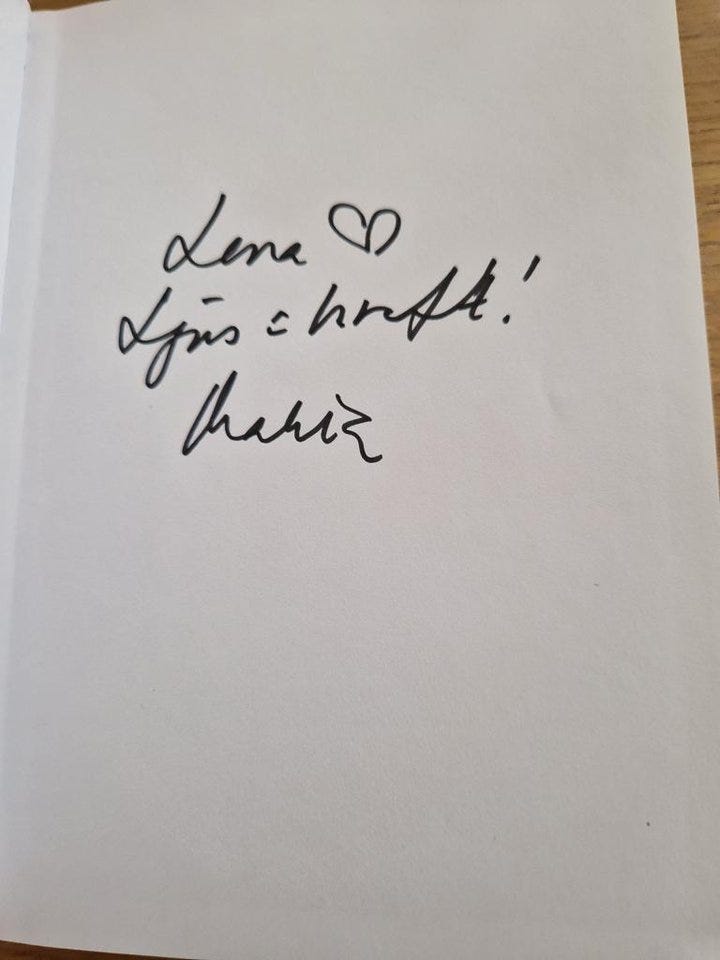 Lena ♡
Ljus = kraft!
Maria